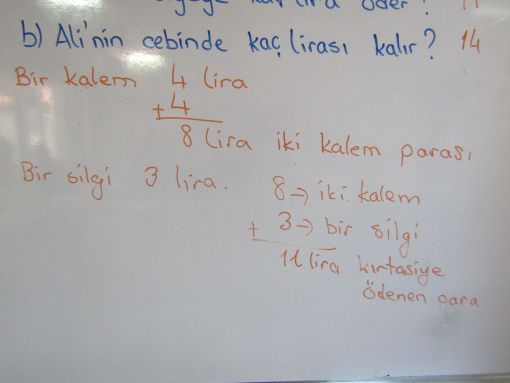 lira öder? 11
b) Ali'nin cebinde kaç lirası kalır? 14
Bir kalem 4 lira
+4
8 lira iki kalem parası
Bir silgi 3 lira.
8→ iki kalem
+ 3→ bir silgi
11 lira kırtasiye
ödenen para